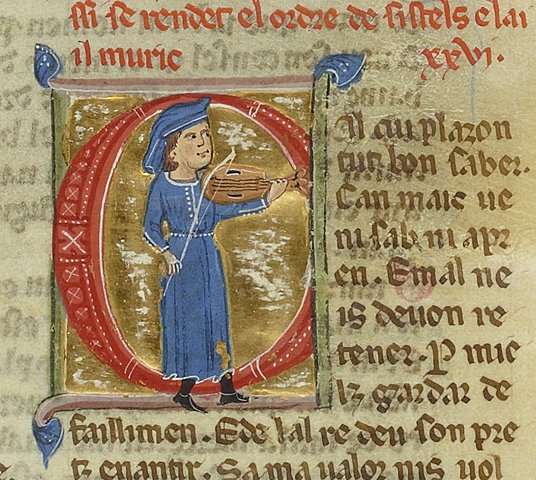 ssi se rendet el ordre de sistels e lai
il muric xxvi.
Cil cui plazon
tuit bon saber.
Can mais ue
ni sab ni apr
en. E mal ne
is deu on re
tener. P mie
lz gardar de
faillimen. E de tal re deu son pre
tz enantir. Sa ma valor nis vol